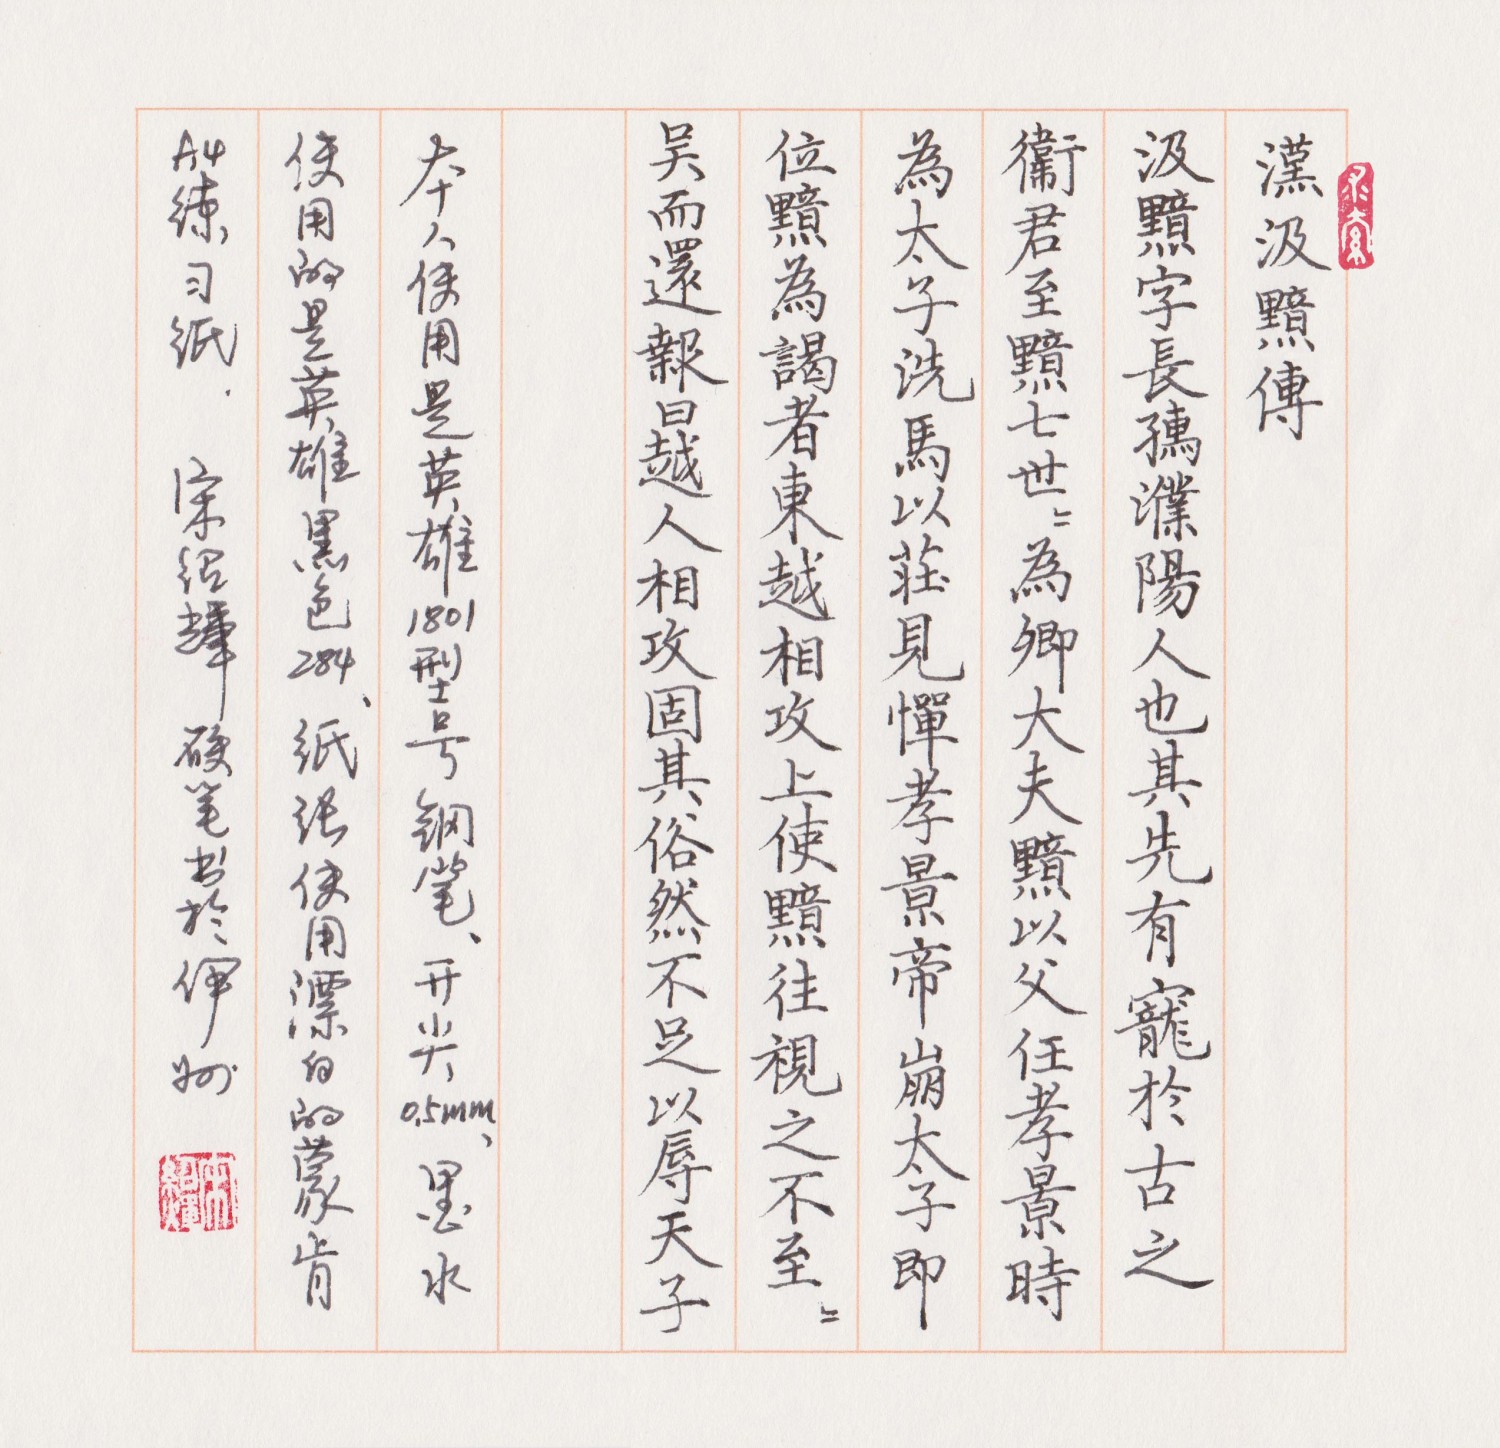 漢汲黯傳
汲黯字長孺濮陽人也其先有寵於古之
衞君至黯七世〻為卿大夫黯以父任孝景時
為太子洗馬以莊見憚孝景帝崩太子即
位黯為謁者東越相攻上使黯往視之不至〻
吴而還報曰越人相攻固其俗然不足以辱天子
本人使用是英雄1801型号钢笔、开尖0.5mm、墨水
使用的是英雄黑色284、纸张使用漂白的蒙肯
A4练习纸.宋绍辉硬笔书於伊州